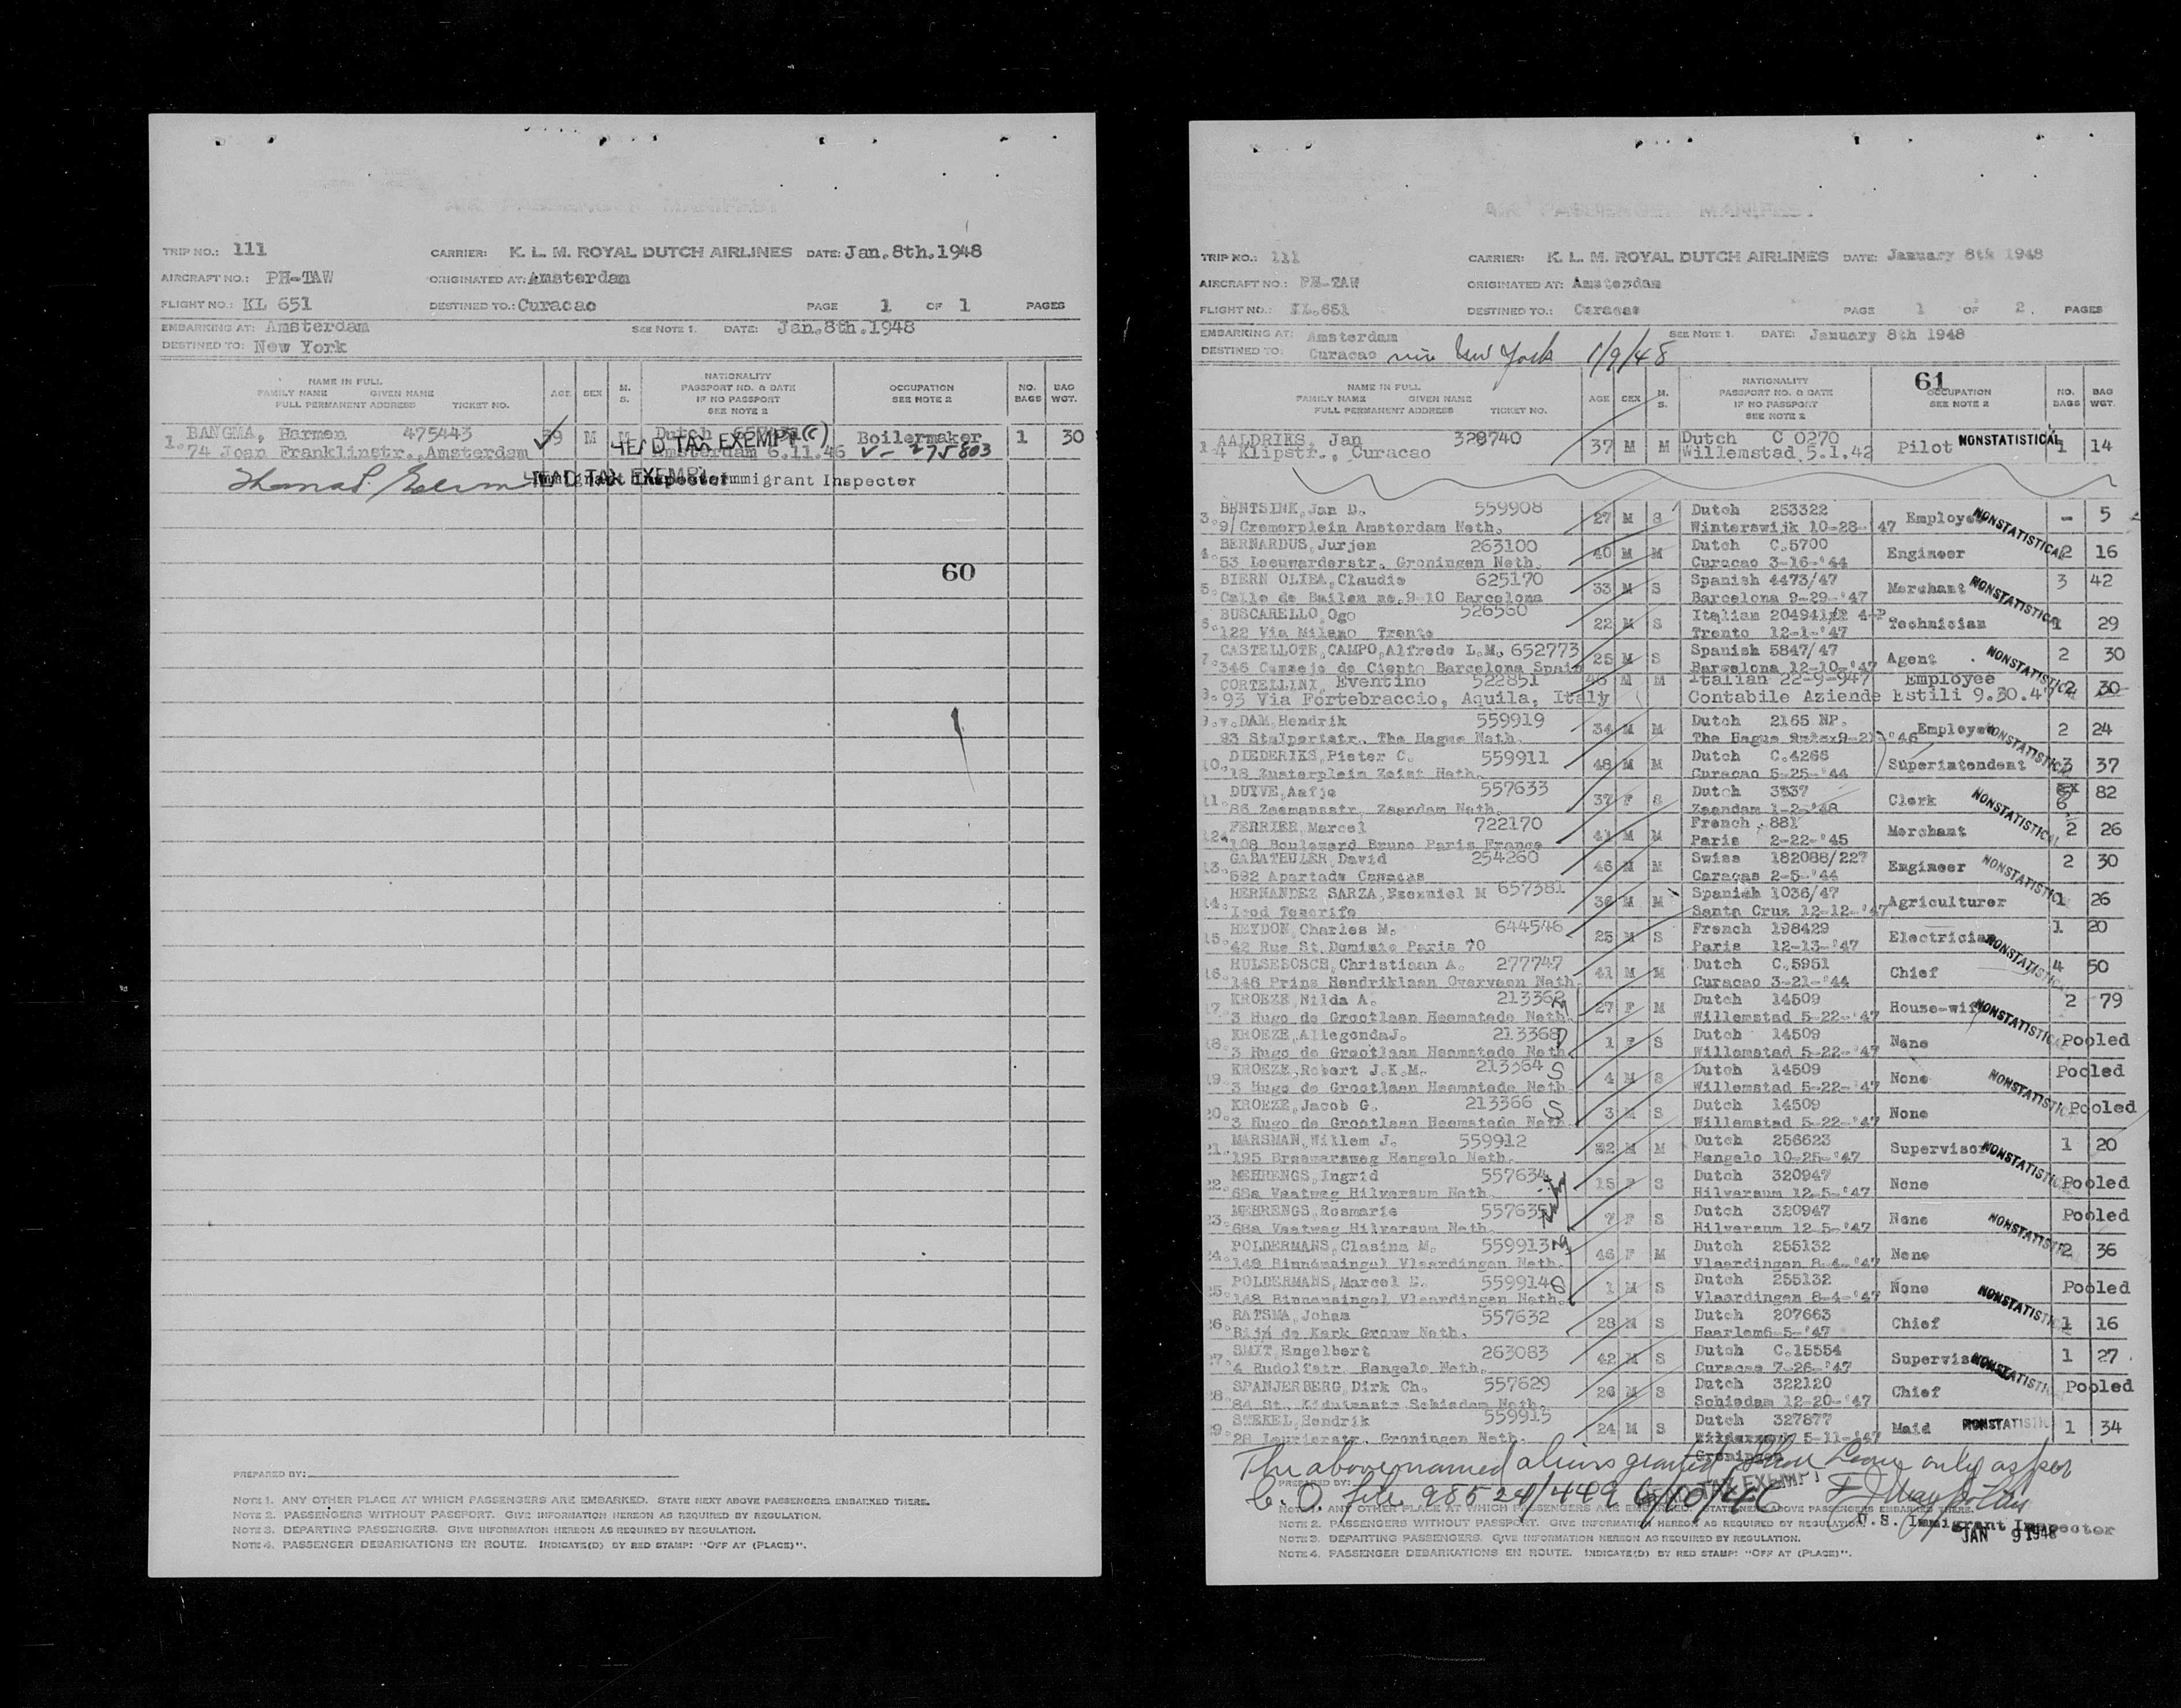 AIR PASSENGER MANIFEST
TRIP NO.: 111 CARRIER: K. L. M. ROYAL DUTCH AIRLINES DATE: Jan.8th.1948
AIRCRAFT NO.: PH-TAW ORIGINATED AT: Amsterdam
FLIGHT NO.: KL 651 DESTINED TO.: Curacao PAGE 1 OF 1 PAGES
EMBARKING AT: Amsterdam SEE NOTE 1. DATE: Jan.8th.1948
DESTINED TO: New York
NAME IN FULL FAMILY NAME GIVEN NAME FULL PERMANENT ADDRESS TICKET NO. AGE SEX M. S. NATIONALITY PASSPORT NO. & DATE IF NO PASSPORT SEE NOTE 2 OCCUPATION SEE NOTE 2 NO. BAGS BAG WGT.
1. BANGMA, Harmen 475443 M M Dutch (C) Boilermaker 1 30
74 Joan Franklinstr., Amsterdam HEAD TAX EXEMPT Amsterdam 6.11.46 V- 275803
HEAD TAX EXEMPT Immigrant Inspector
60
PREPARED BY:
NOTE 1. ANY OTHER PLACE AT WHICH PASSENGERS ARE EMBARKED. STATE NEXT ABOVE PASSENGERS EMBARKED THERE.
NOTE 2. PASSENGERS WITHOUT PASSPORT. GIVE INFORMATION HEREON AS REQUIRED BY REGULATION.
NOTE 3. DEPARTING PASSENGERS. GIVE INFORMATION HEREON AS REQUIRED BY REGULATION.
NOTE 4. PASSENGER DEBARKATIONS EN ROUTE. INDICATE(D) BY RED STAMP: "OFF AT (PLACE)".
AIR PASSENGER MANIFEST
TRIP NO.: 111 CARRIER: K. L. M. ROYAL DUTCH AIRLINES DATE: January 8th 1948
AIRCRAFT NO.: PH-TAW ORIGINATED AT: Amsterdam
FLIGHT NO.: KL.651 DESTINED TO: Curacao PAGE 1 OF 2. PAGES
EMBARKING AT: Amsterdam SEE NOTE 1. DATE: January 8th 1948
DESTINED TO: Curacao via New York 1/9/48
61
NAME IN FULL FAMILY NAME GIVEN NAME FULL PERMANENT ADDRESS TICKET NO. AGE SEX M. S. NATIONALITY PASSPORT NO. & DATE IF NO PASSPORT SEE NOTE 2 OCCUPATION SEE NOTE 2 NO. BAGS BAG WGT.
1 AALDRIKS, Jan 328740 37 M M Dutch C 0270 Pilot NONSTATISTICAL 1 14
4 Klipstr., Curacao Willemstad 5.1.42
3. BENTSINK, Jan D. 559908 27 M S Dutch 253322 Employee NONSTATISTICAL - 5
9 Cremerplein Amsterdam Neth. Winterswijk 10-28-'47
4. BERNARDUS, Jurjen 263100 40 M M Dutch C.5700 Engineer 2 16
53 Leeuwarderstr. Groningen Neth. Curacao 3-16-'44
5. BIERN OLIBA, Claudio 625170 33 M S Spanish 4473/47 Merchant NONSTATISTICAL 3 42
Calle de Bailen no.9-10 Barcelona Barcelona 9-29-'47
6. BUSCARELLO, Ogo 526580 22 M S Italian Technician 1 29
122 Via Milano Trento Trento 12-1-'47
7. CASTELLOTE, CAMPO, Alfredo L.M. 652773 25 M S Spanish 5847/47 Agent NONSTATISTICAL 2 30
346 Consejo de Ciento Barcelona Spain Barcelona 12-10-'47
CORTELLINI, Eventino 522851 46 M M Italian 22-9-947 Employee 2 30
93 Via Fortebraccio, Aquila, Italy Contabile Aziende Estili 9.30.47
9. v. DAM, Hendrik 559919 34 M M Dutch 2165 NP. Employee NONSTATISTICAL 2 24
93 Stalpertstr. The Hague Neth. The Hague 9-21-'46
10. DIEDERIKS, Pieter C. 559911 48 M M Dutch C.4266 Superintendent 3 37
18 Zusterplein Zeist Neth. Curacao 5-25-'44
11. DUYVE, Aafje 557633 37 F S Dutch 3337 Clerk NONSTATISTICAL 6 82
86 Zeemansstr. Zaandam Neth. Zaandam 1-2-'48
12. FERRIER, Marcel 722170 41 M M French 881 Merchant 2 26
108 Boulevard Brune Paris France Paris 2-22-'45
13. GABATHULER, David 254260 46 M M Swiss 182088/227 Engineer NONSTATISTICAL 2 30
592 Apartado Caracas Caracas 2-5-'44
14. HERNANDEZ SARZA, Ezequiel M 657381 36 M M Spanish 1036/47 Agriculturer 1 26
Icod Tenerife Santa Cruz 12-12-'47
15. HEYDON, Charles M. 644546 25 M S French 198429 Electrician NONSTATISTICAL 1 20
42 Rue St. Dominic Paris 70 Paris 12-13-'47
16. HULSEBOSCH, Christiaan A. 277747 41 M M Dutch C.5951 Chief 4 50
146 Prins Hendriklaan Overveen Neth. Curacao 3-21-'44
17. KROEZE, Nilda A. 213362 27 F M Dutch 14509 House-wife NONSTATISTICAL 2 79
3 Hugo de Grootlaan Heemstede Neth. Willemstad 5-22-'47
18. KROEZE, Allegonda J. 213368 D 1 F S Dutch 14509 None Pooled
3 Hugo de Grootlaan Heemstede Neth. Willemstad 5-22-'47
19. KROEZE, Robert J.K.M. 213364 S 4 M S Dutch 14509 None NONSTATISTICAL Pooled
3 Hugo de Grootlaan Heemstede Neth. Willemstad 5-22-'47
20. KROEZE, Jacob G. 213366 S 3 M S Dutch 14509 None Pooled
3 Hugo de Grootlaan Heemstede Neth. Willemstad 5-22-'47
21. MARSMAN, Willem J. 559912 32 M M Dutch 256623 Supervisor NONSTATISTICAL 1 20
195 Hengelo Neth. Hengelo 10-25-'47
22. MEHRENGS, Ingrid 557634 15 F S Dutch 320947 None Pooled
68a Vaatweg Hilversum Neth. Hilversum 12-5-'47
23. MEHRENGS, Rosmarie 557635 7 F S Dutch 320947 None NONSTATISTICAL Pooled
68a Vaatweg Hilversum Neth. Hilversum 12-5-'47
24. POLDERMANS, Clasina M. 559913 M 46 F M Dutch 255132 None 2 36
148 Binnensingel Vlaardingen Neth. Vlaardingen 8-4-'47
25. POLDERMANS, Marcel E. 559914 S 1 M S Dutch 255132 None NONSTATISTICAL Pooled
148 Binnensingel Vlaardingen Neth. Vlaardingen 8-4-'47
26. RATSMA, Johan 557632 28 M S Dutch 207663 Chief 1 16
Bij de Kerk Grouw Neth. Haarlem 6-5-'47
27. SMIT, Engelbert 263083 42 M S Dutch C.15554 Supervisor NONSTATISTICAL 1 27
4 Rudolfstr. Hengelo Neth. Curacao 7-26-'47
28. SPANJERBERG, Dirk Ch. 557629 26 M S Dutch 322120 Chief Pooled
84 St. Schiedam Neth. Schiedam 12-20-'47
29. STEKEL, Hendrik 559915 24 M S Dutch 327877 Maid NONSTATISTICAL 1 34
28 Laurierstr. Groningen Neth. 5-11-'47
Groningen
The above named aliens granted Shore Leave only as per
C. O. file 98524/449 6/10/46
PREPARED BY: HEAD TAX EXEMPT
NOTE 1. ANY OTHER PLACE AT WHICH PASSENGERS ARE EMBARKED. STATE NEXT ABOVE PASSENGERS EMBARKED THERE.
NOTE 2. PASSENGERS WITHOUT PASSPORT. GIVE INFORMATION HEREON AS REQUIRED BY REGULATION.
U.S. Immigrant Inspector
NOTE 3. DEPARTING PASSENGERS. GIVE INFORMATION HEREON AS REQUIRED BY REGULATION.
JAN 9 1948
NOTE 4. PASSENGER DEBARKATIONS EN ROUTE. INDICATE(D) BY RED STAMP: "OFF AT (PLACE)".